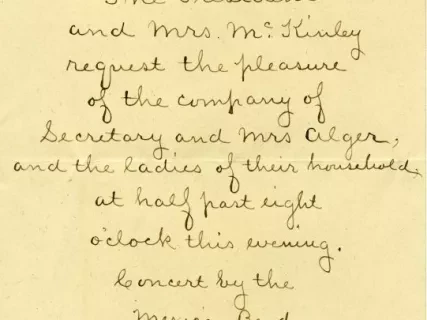 The President
and Mrs. McKinley
request the pleasure
of the company of
Secretary and Mrs Alger,
and the ladies of their household,
at half past eight
o'clock this evening.
Concert by the
Band